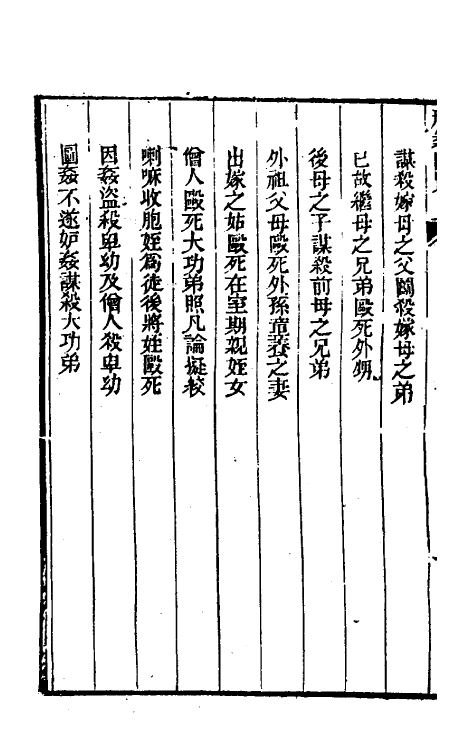 謀殺嫁母之父鬬殺嫁母之弟
已故繼母之兄弟毆死外甥
後母之子謀殺前母之兄弟
外祖父母毆死外孫童養之妻
出嫁之姑毆死在室期親姪女
僧人毆死大功弟照凡論擬絞
喇嘛收胞姪為徒後將姪毆死
因姦盜殺卑幼及僧人殺卑幼
圖姦不遂妒姦謀殺大功弟